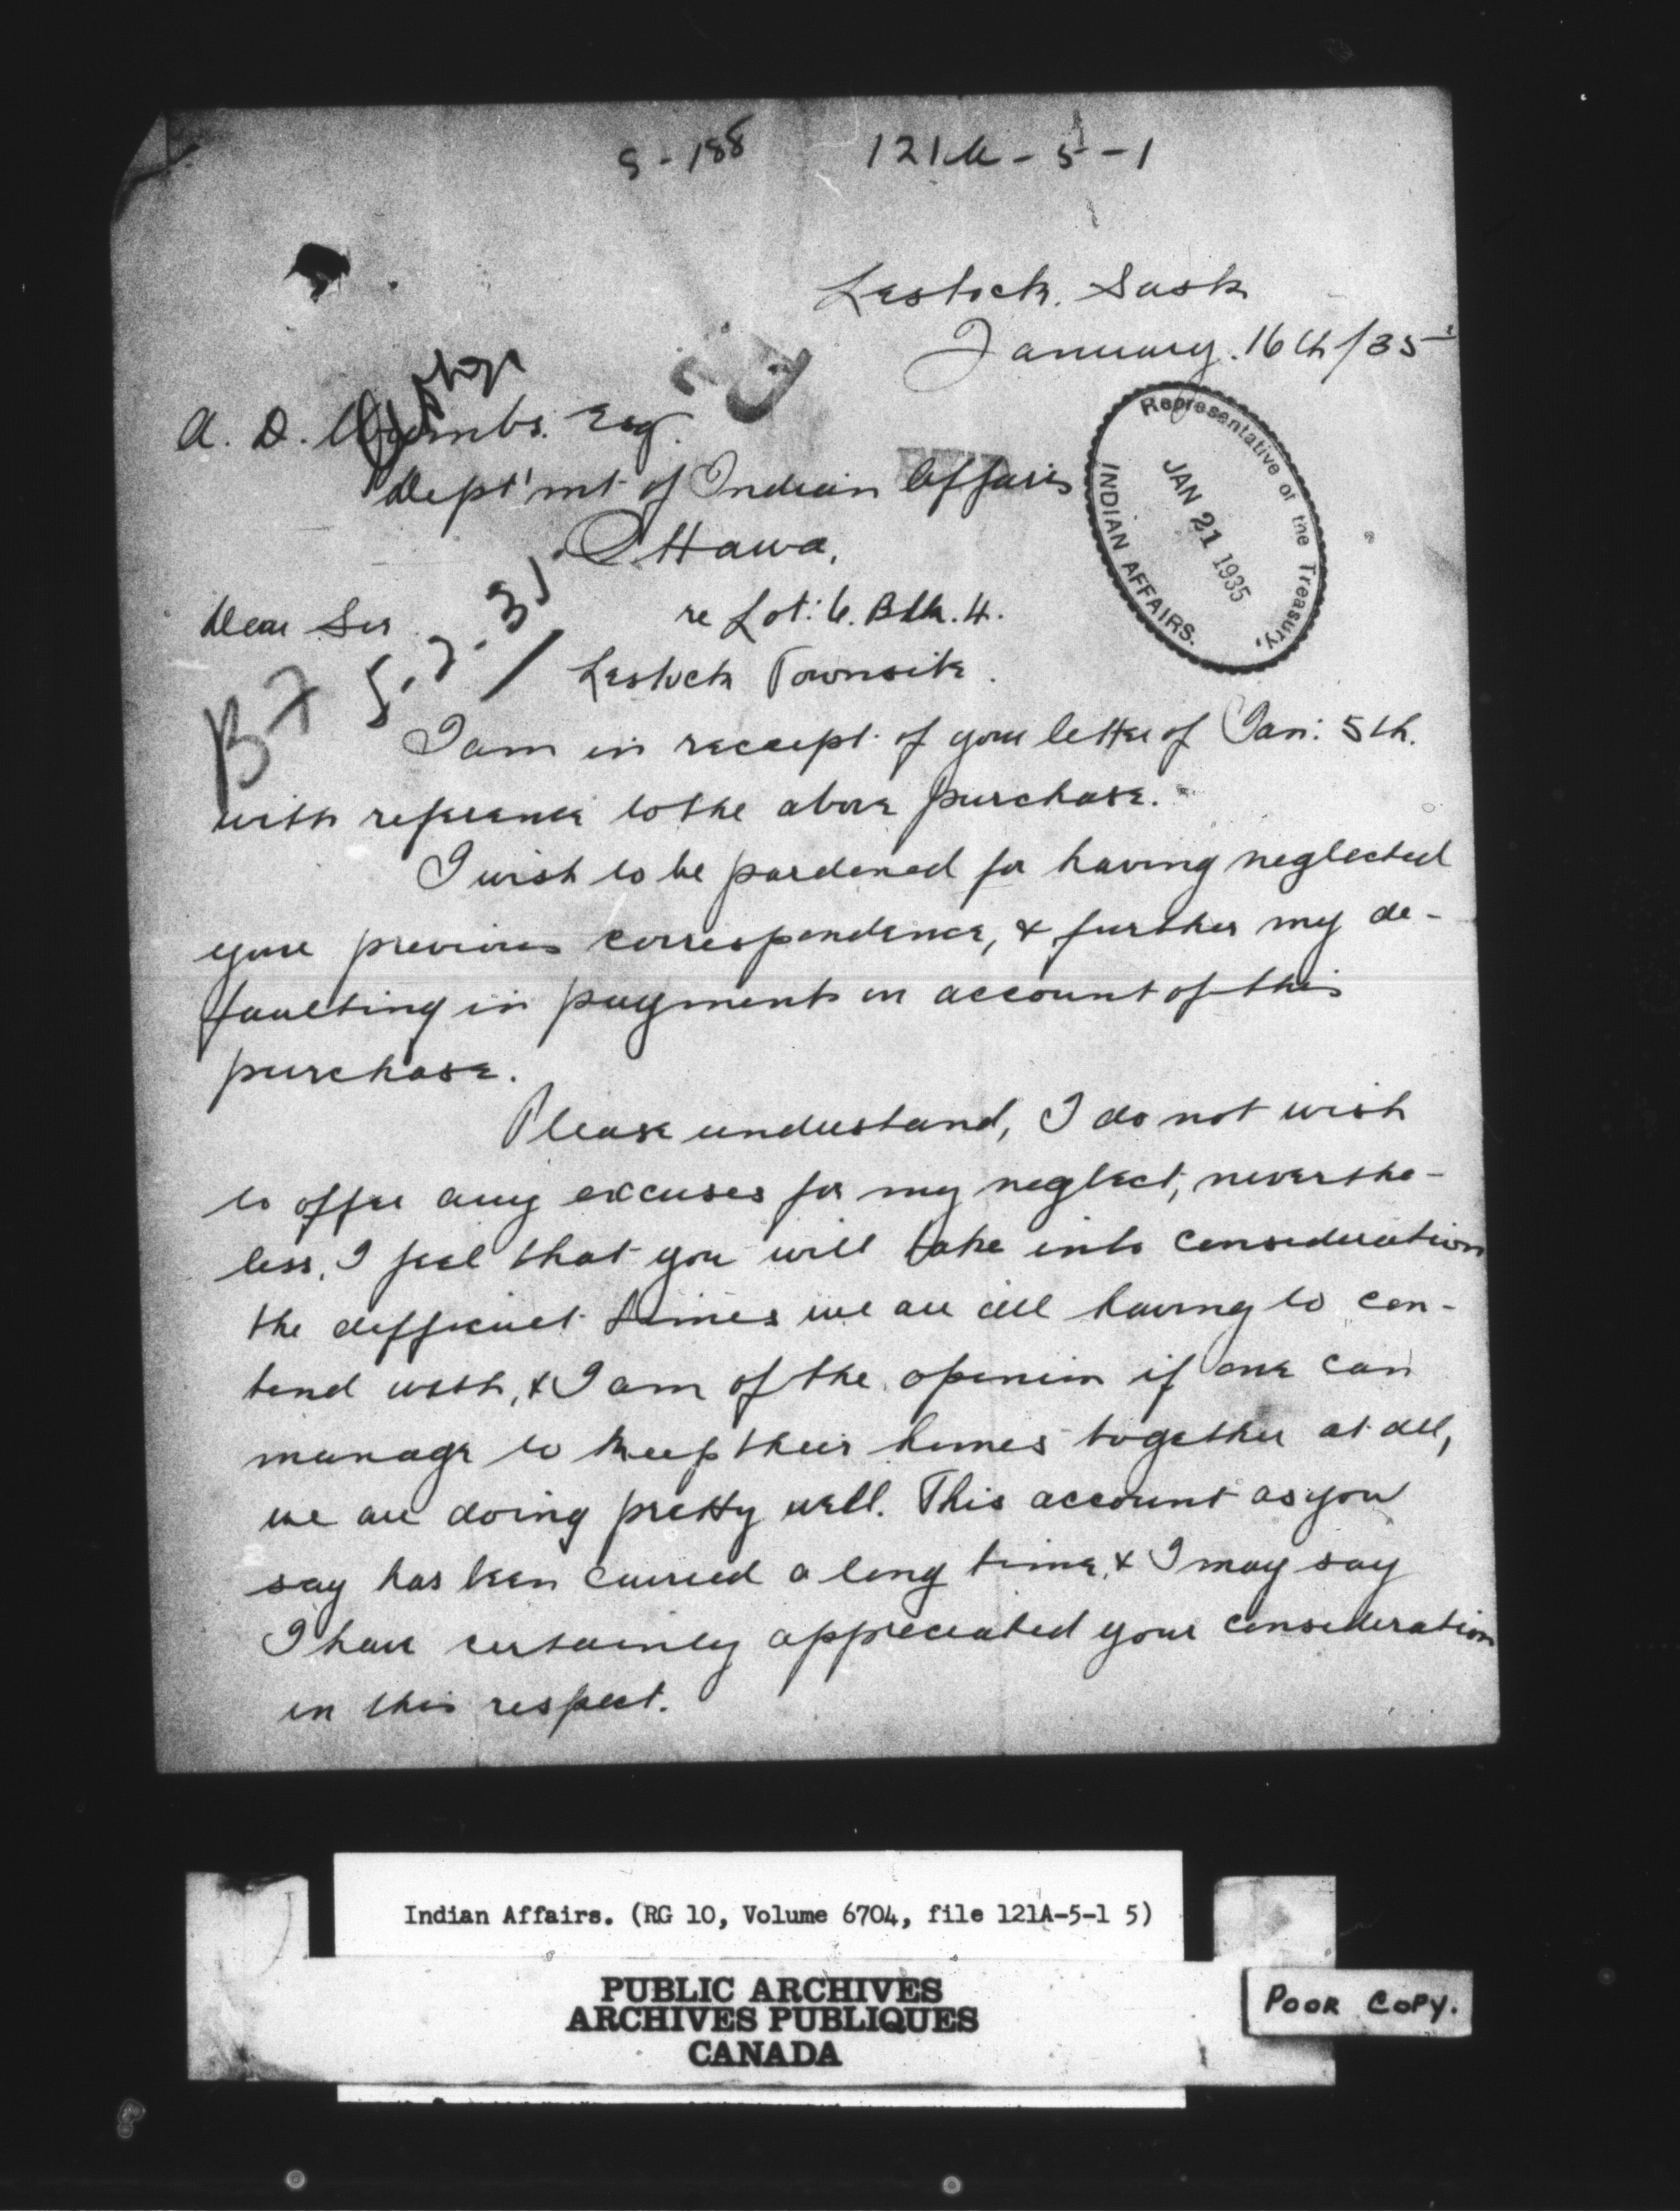 S-188 121A-5-1
Lestock. Sask
January. 16th/35
A. D. Esq.
Dept'mt of Indian Affairs
Ottawa,
Representative of the Treasury,
JAN 21 1935
INDIAN AFFAIRS.
Dear Sir re Lot: 6. Blk. 4.
Lestock Townsite.
I am in receipt of your letter of Jan: 5th.
with referance to the above purchase.
I wish to be pardoned for having neglected
your previous correspondence, & further my de-
faulting in payments on account of this
purchase.
Please understand, I do not wish
to offer any excuses for my neglect, neverthe-
less, I feel that you will take into consideration
the difficult times we are all having to con-
tend with, & I am of the opinion if one can
manage to keep their homes together at all,
we are doing pretty well. This account as you
say has been carried a long time, & I may say
I have certainly appreciated your consideration
in this respect.
Indian Affairs. (RG 10, Volume 6704, file 121A-5-1 5)
PUBLIC ARCHIVES
ARCHIVES PUBLIQUES
CANADA
POOR COPY.